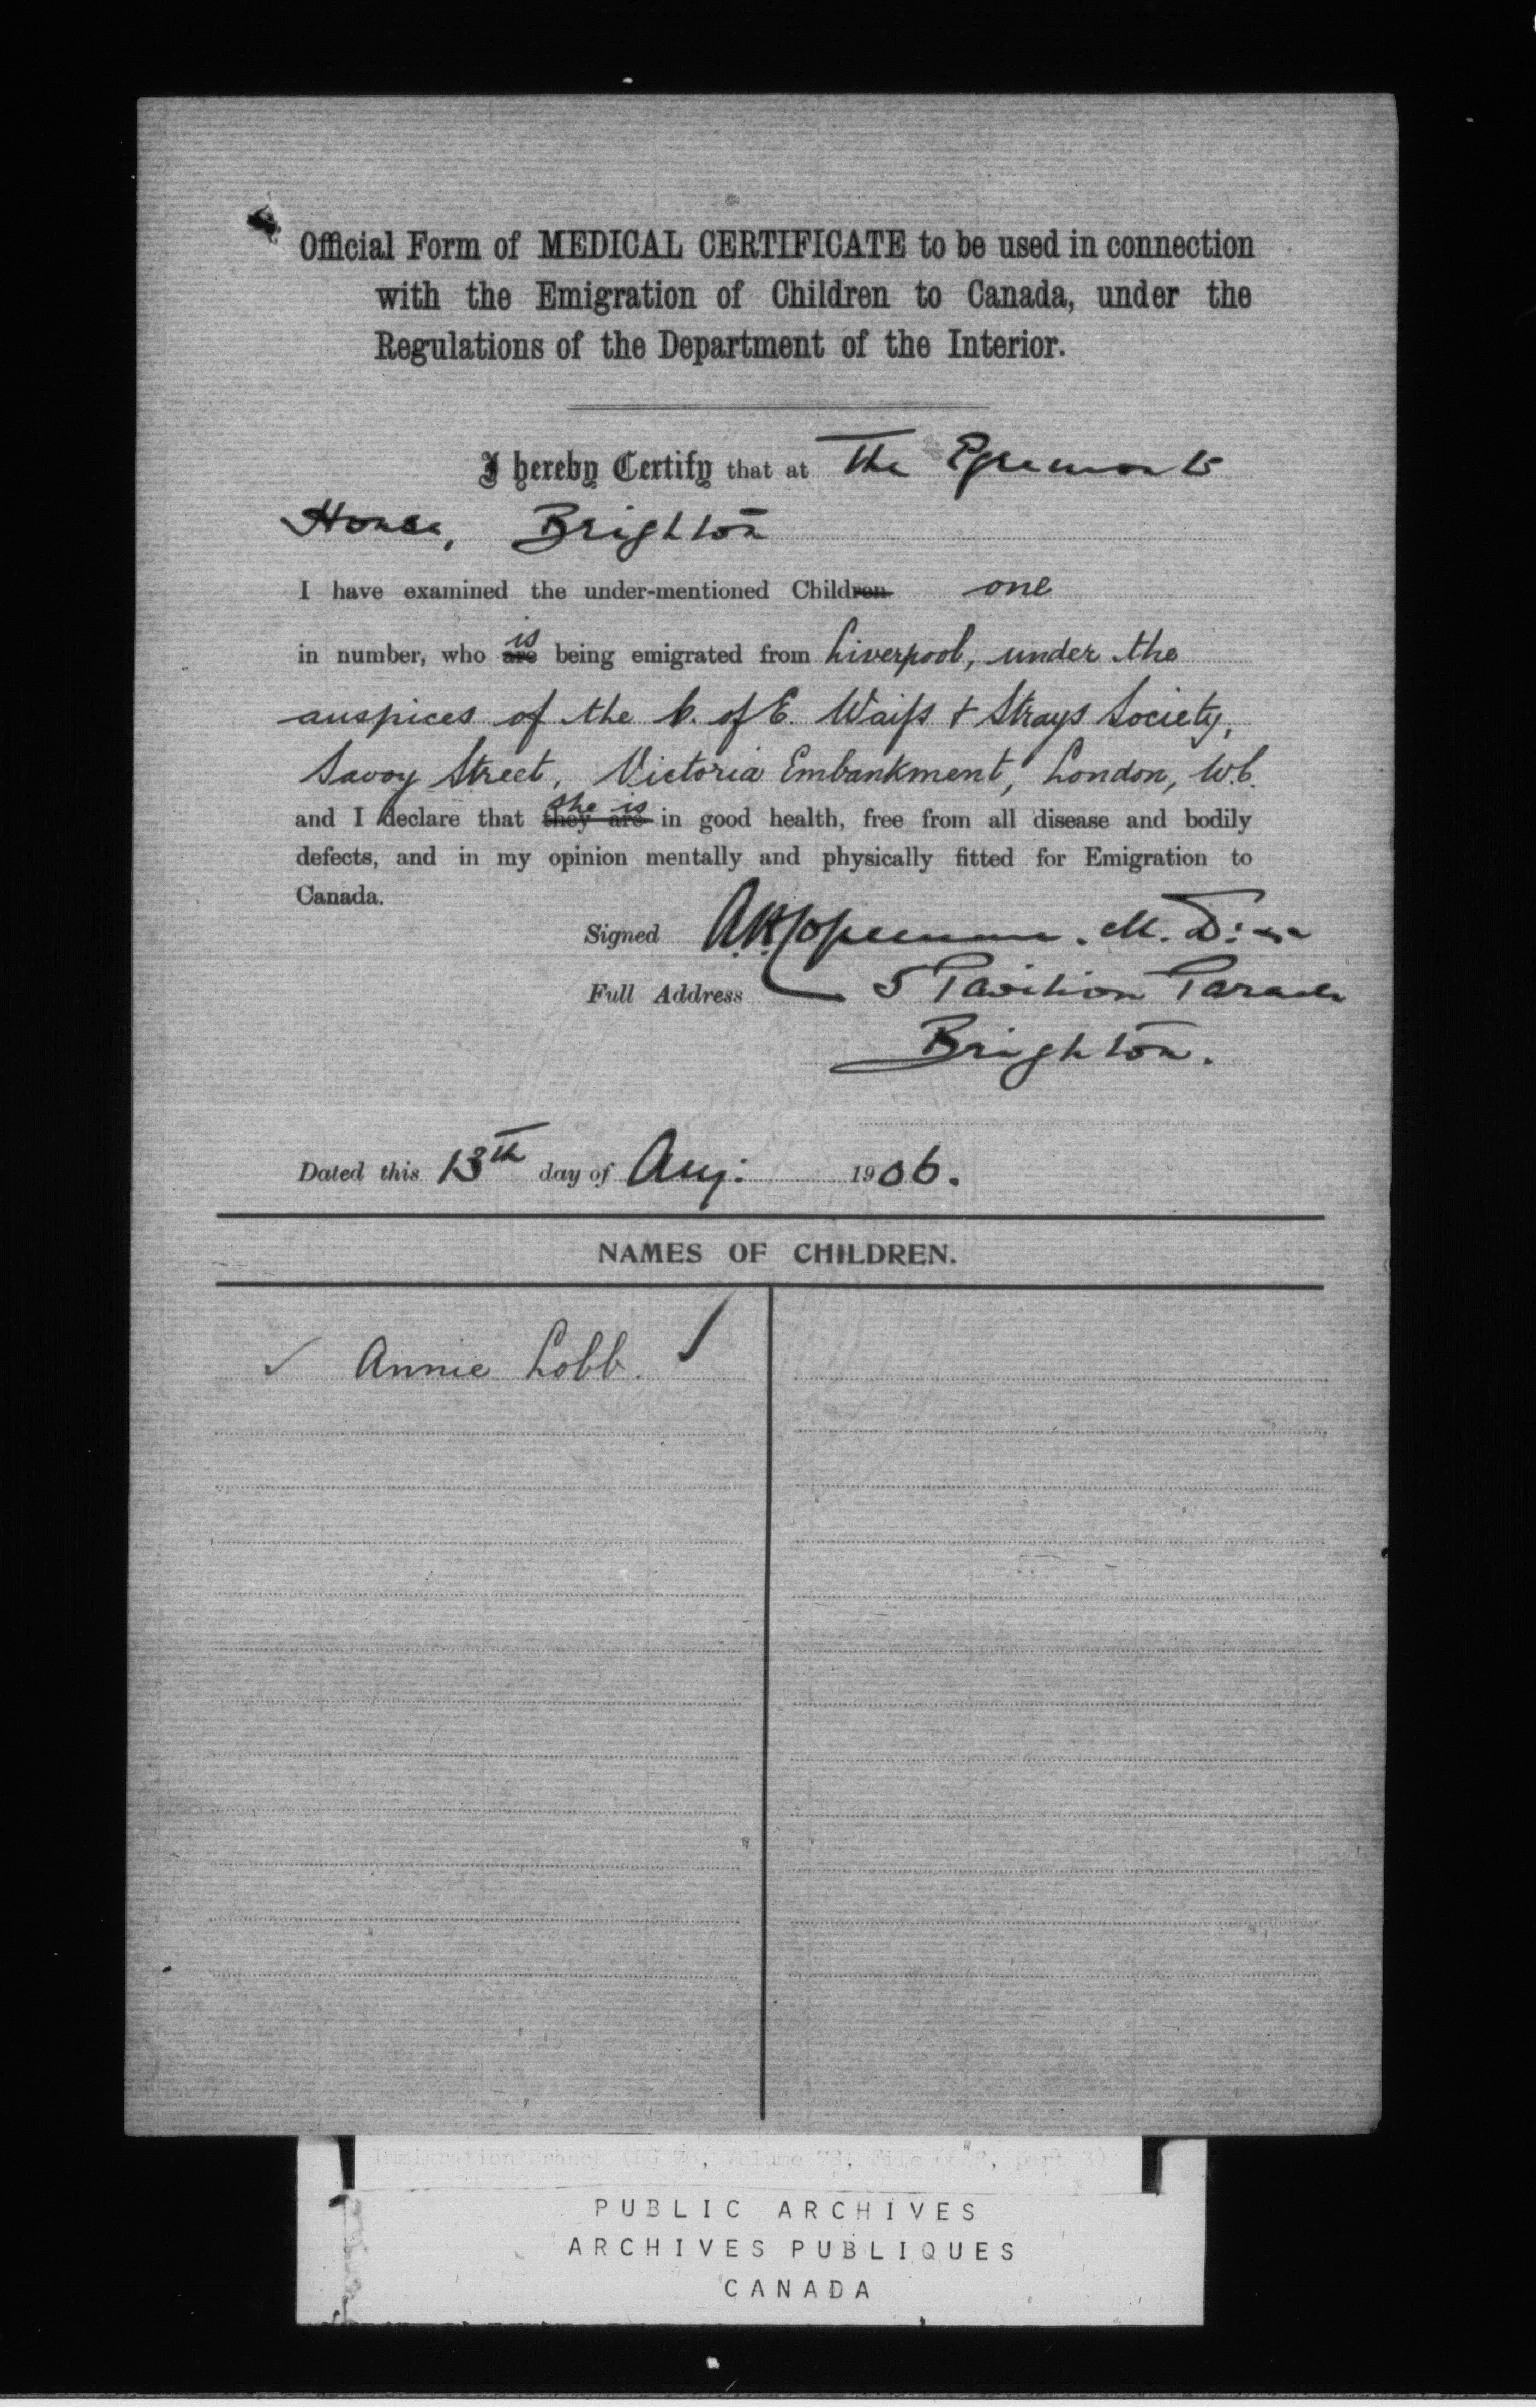 Official Form of MEDICAL CERTIFICATE to be used in connection
with the Emigration of Children to Canada, under the
Regulations of the Department of the Interior.
I hereby Certify that at The Egremont
House, Brighton
I have examined the under-mentioned Children one
in number, who are is being emigrated from Liverpool, under the
auspices of the C. of E. Waifs & Strays Society,
Savoy Street, Victoria Embankment, London, W.C.
and I declare that they are she is in good health, free from all disease and bodily
defects, and in my opinion mentally and physically fitted for Emigration to
Canada.
Signed M.D.
Full Address 5 Pavilion Parade
Brighton.
Dated this 13th day of Aug: 1906.
NAMES OF CHILDREN.
✓ Annie Lobb. /
Immigration Branch (RG 76, Volume 78, File 6648, part 3)
PUBLIC ARCHIVES
ARCHIVES PUBLIQUES
CANADA